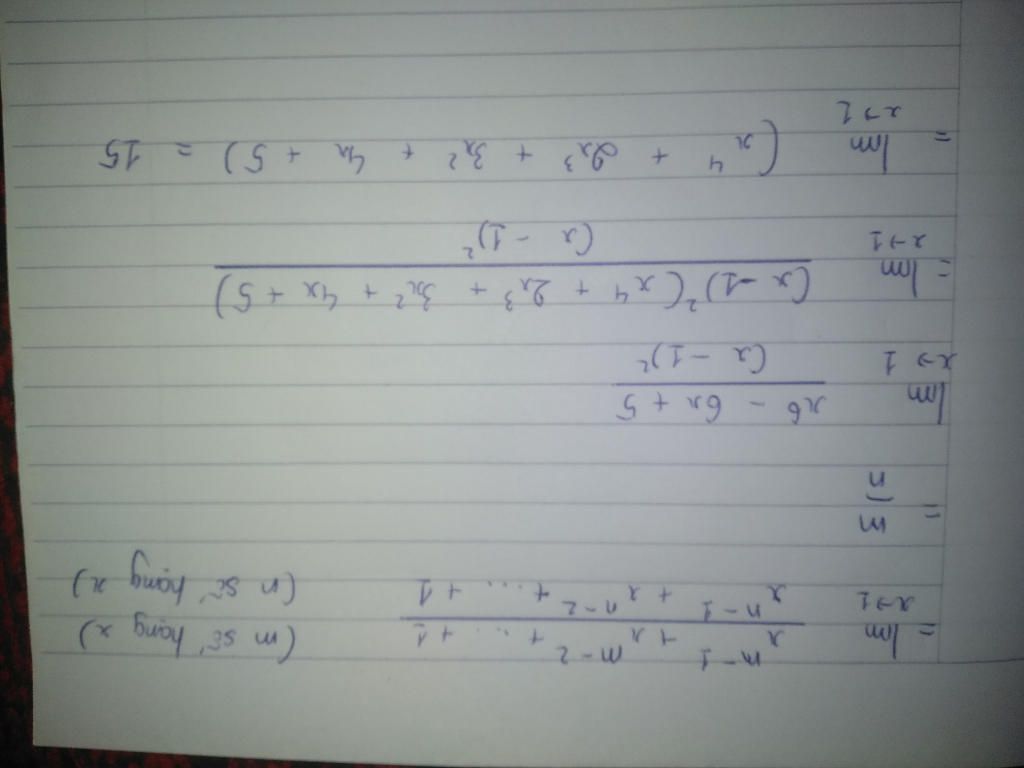 = lim x→1 (x^{m-1} + x^{m-2} + ... + 1) / (x^{n-1} + x^{n-2} + ... + 1) (m số hạng x) (n số hạng x)
= m/n
lim x→1 (x^6 - 6x + 5) / (x - 1)²
= lim x→1 ((x - 1)² (x^4 + 2x³ + 3x² + 4x + 5)) / (x - 1)²
= lim x→1 (x^4 + 2x³ + 3x² + 4x + 5) = 15